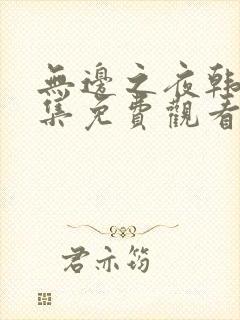 無邊之夜韩
集免費觀看
君亦筠